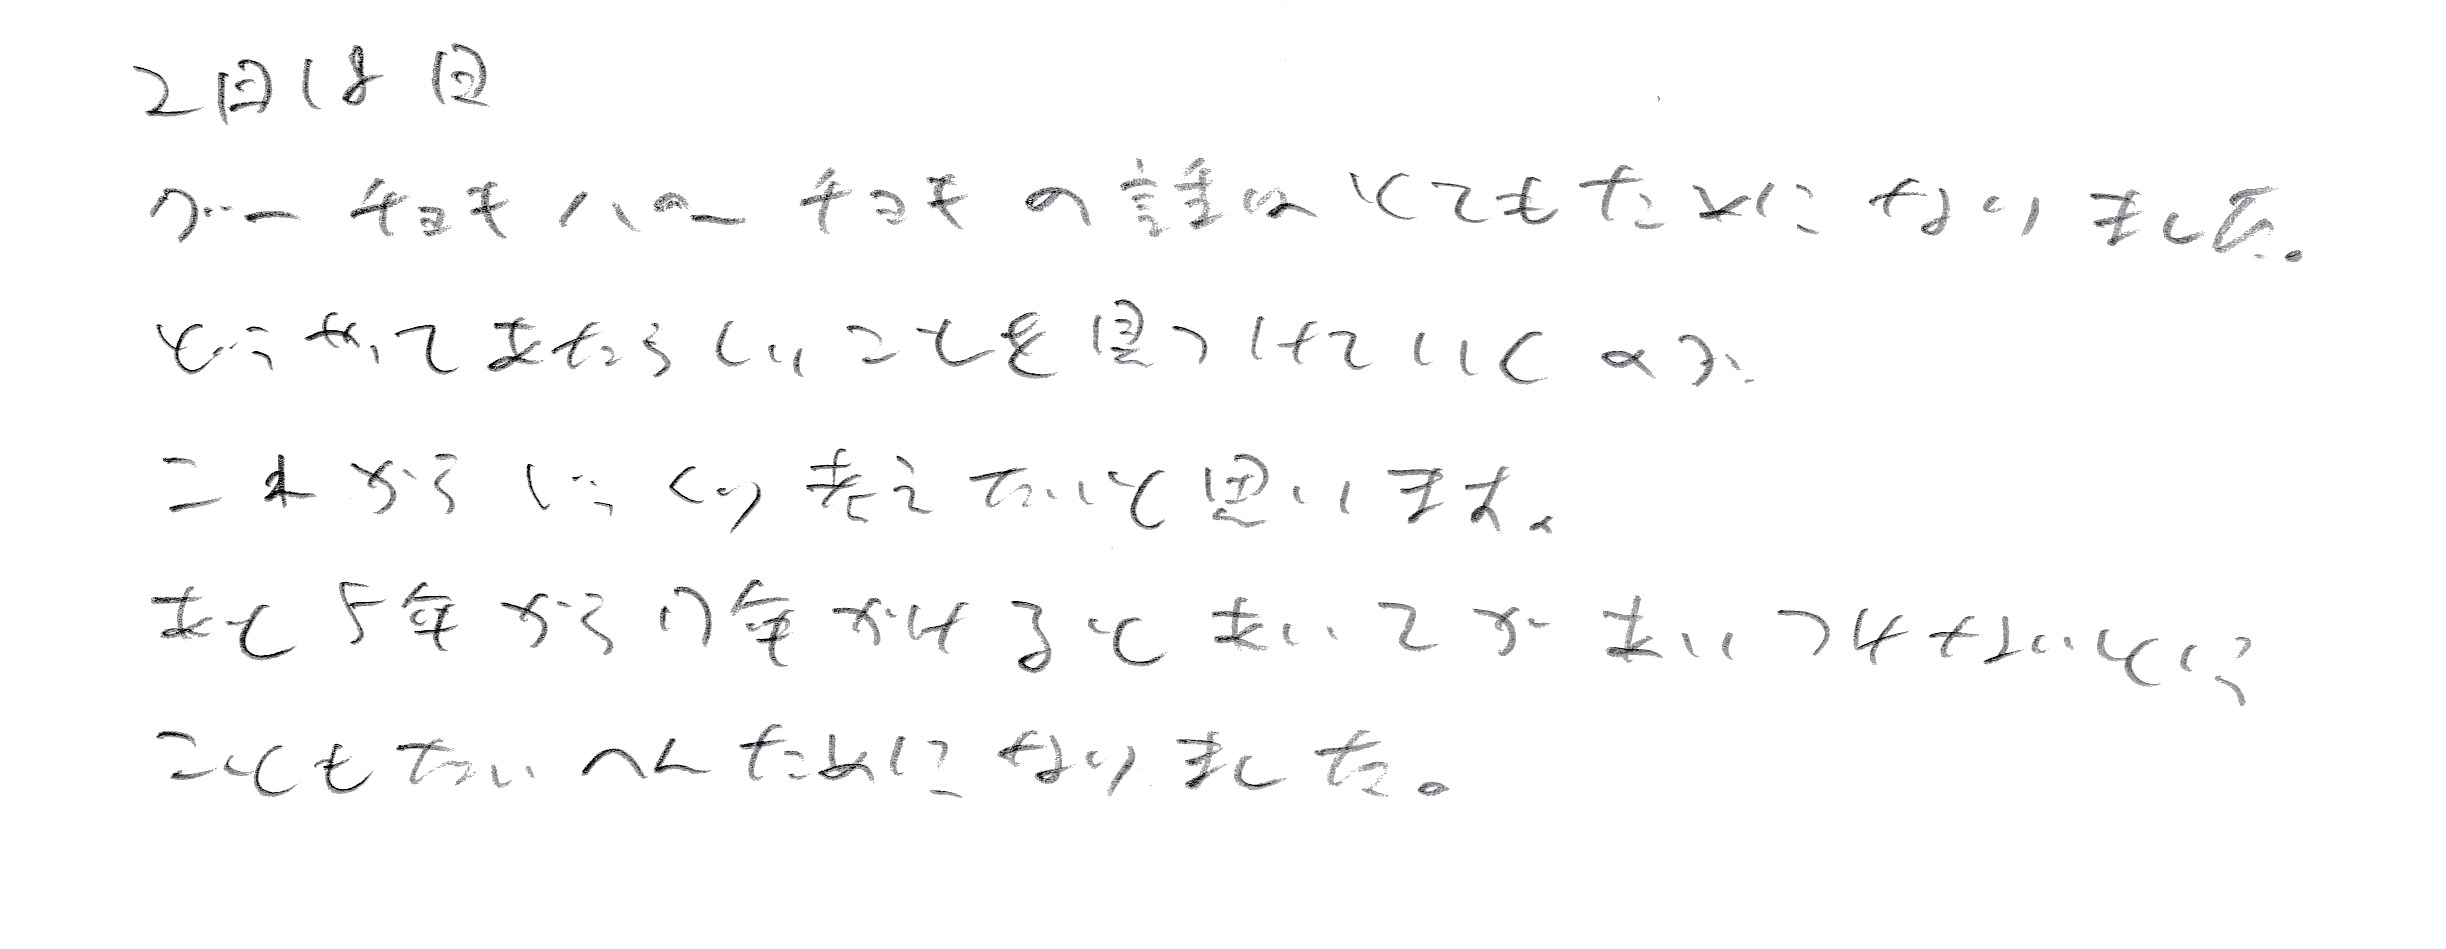 2日は回
グーチョキパーチョキの話はとてもためになりました。
どうやってあたらしいことを見つけていくのか
これからじっくり考えたいと思います。
あと5年から17年かけるとあいてがあいつけないという
こともたいへんためになりました。